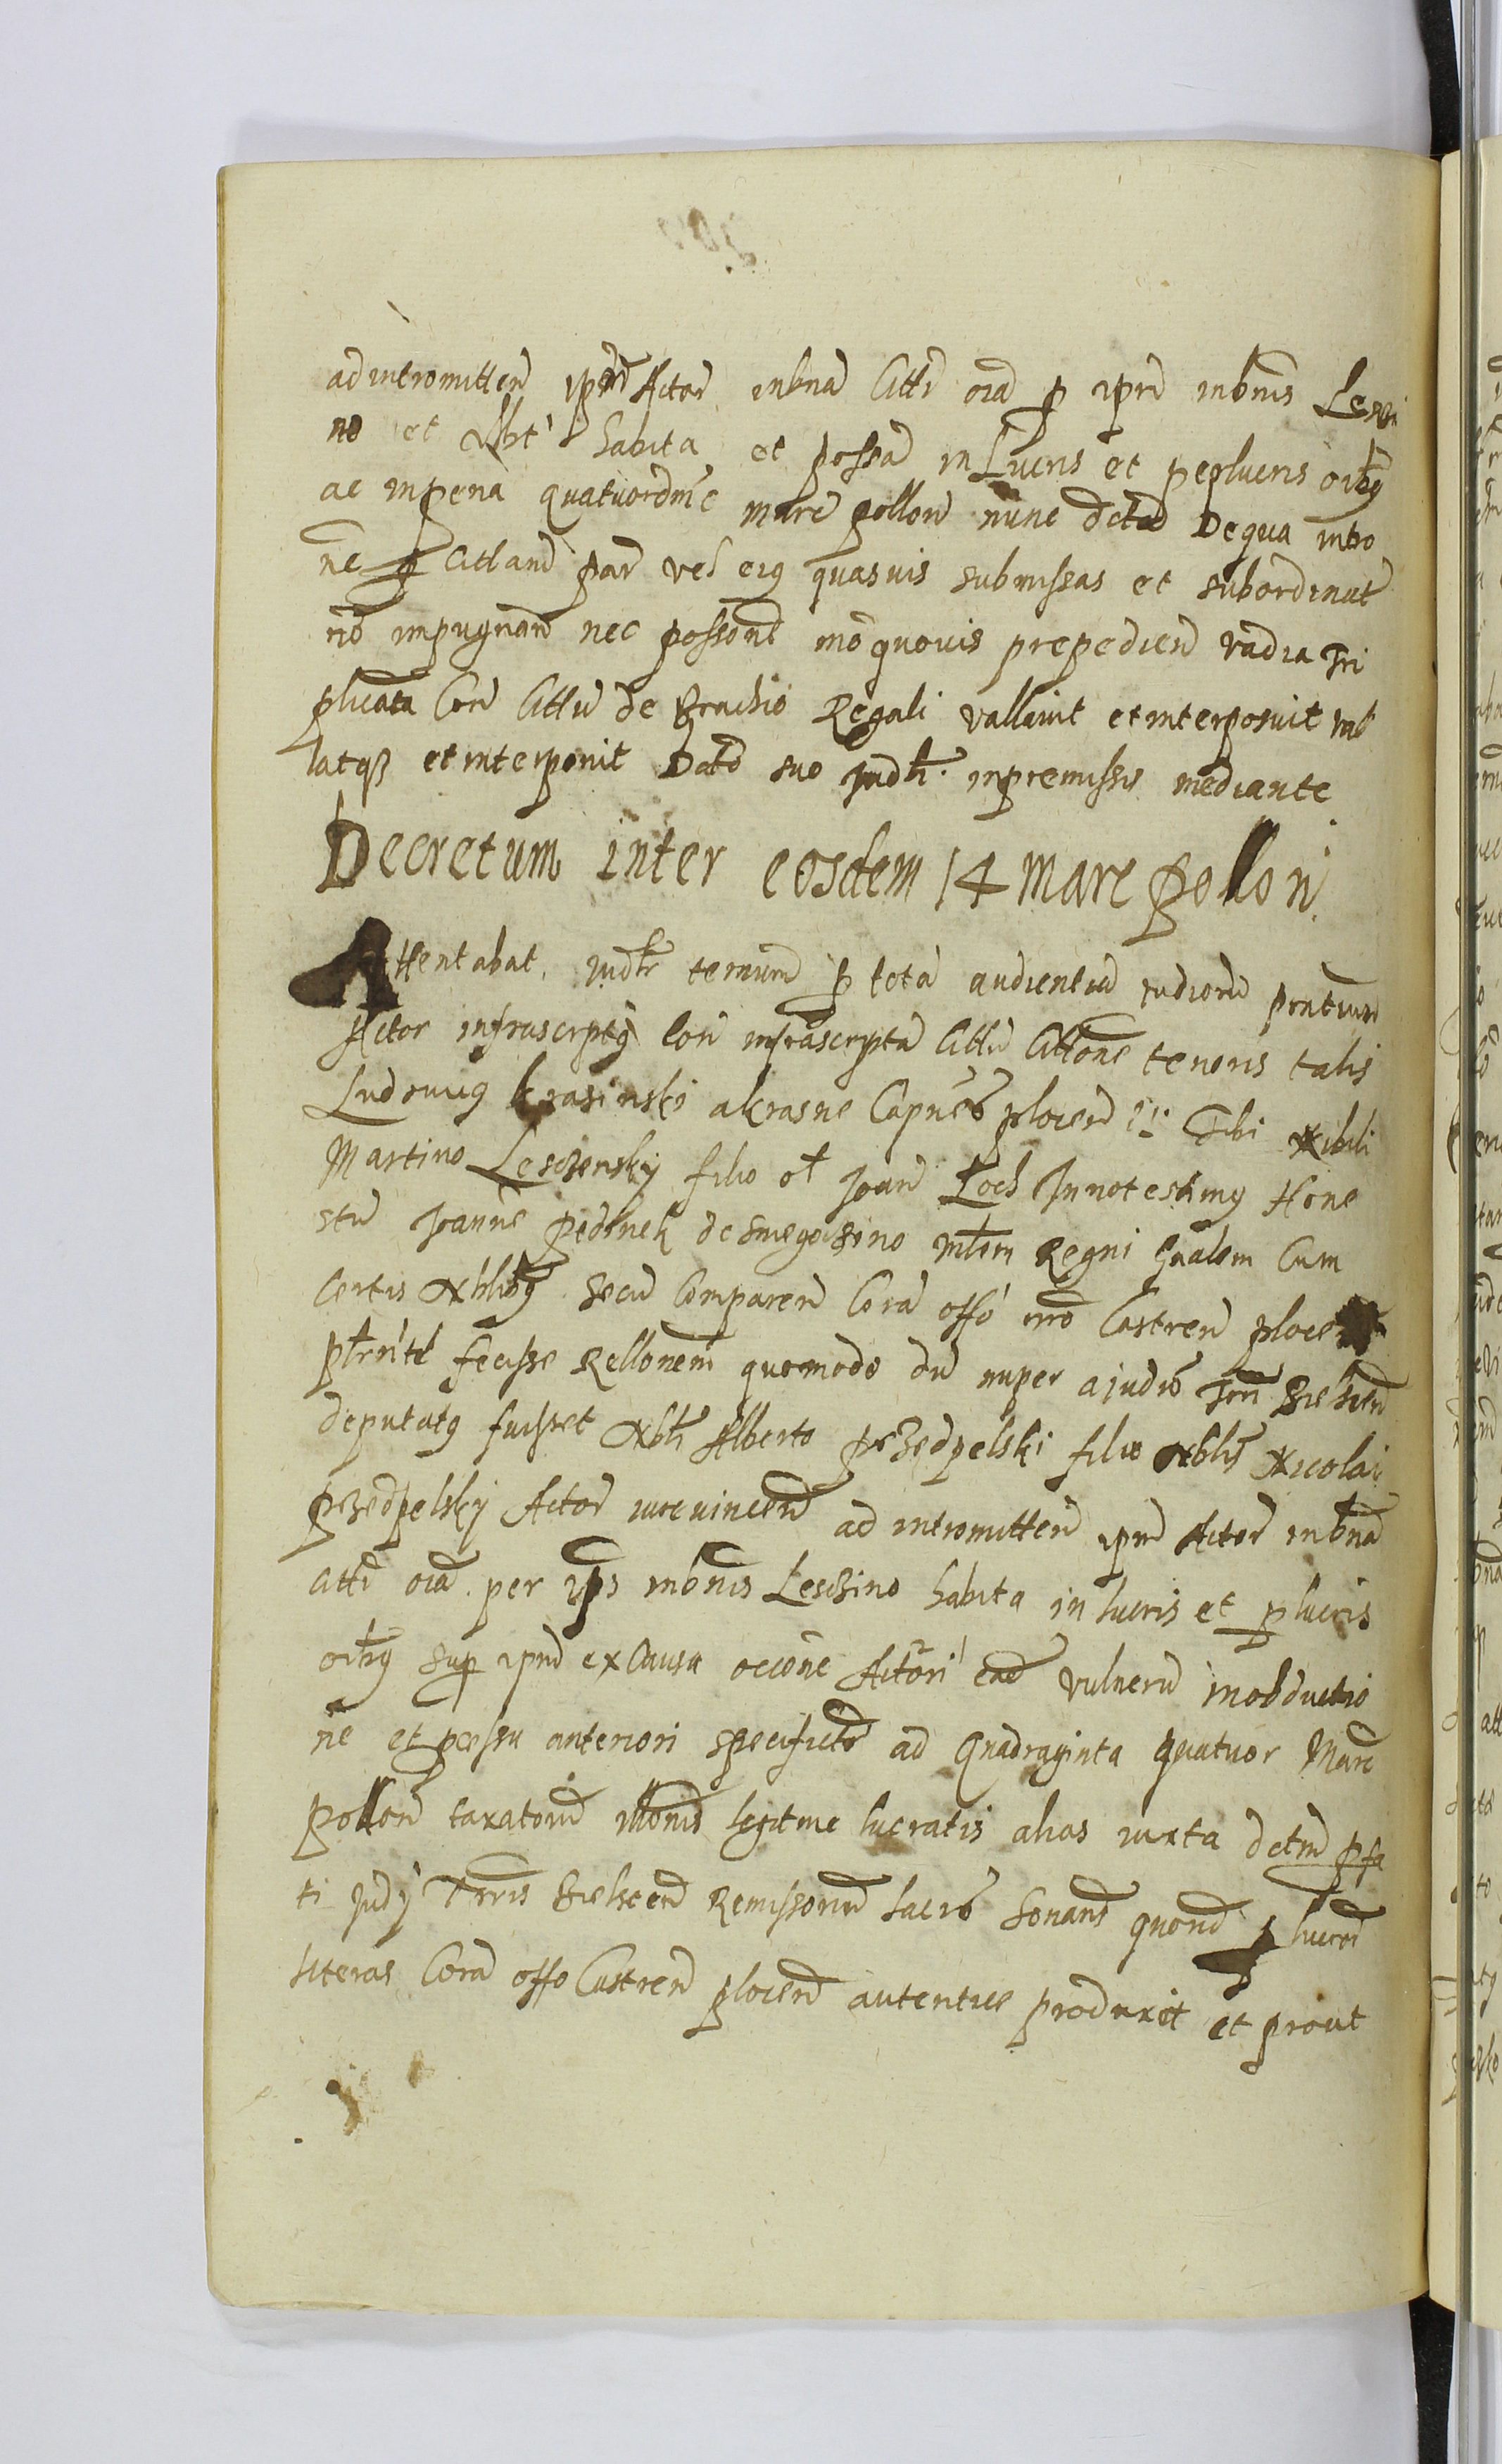 ad intromitten ipm Actor in bna Citti oia p ipm in bonis Leszi
no et Alibi habita et possa in Lucris et perlucris oibq
ac in pena quatuordec marc pollon nunc dctad De qua intro
ne p Cittand par vel eiq quasuis submissas et subordinat
no impugnan nec possond mo quouis prepedien vadia Tri
plicata Con Cittu de Brachio Regali vallauit et interposuit val
latqz et interponit Dcto suo Judli in premissis mediante
Decretum inter eosdem 14 marc Pollon
Attentabat Judlr terminu p tota audientia iudioru prntium
Actor infrascrptq Con infrascripta Cittu Cittone tenoris talis
Ludouicq krasinski a krasne Capneo plocen Tibi Nobili
Martino Lesczensky filio ol Joan Loch Innotescimq Hone
stu Joanne Pedinek de Smegoczino mlem Regni Gnalem Cum
Certis Nblibq secu Comparen Cora offo nro Castren plocen
plrnte fecisse Rellonem quomodo du nuper a judio Trri Bielscen
deputatq fuisset Nbli Alberto Przedpelski filio Nblis Nicolai
Przedpelsky Actor iure vincen ad intromitten ipm Actor in bna
Citti oia per ips in bnis Lesczino habita in lucris et p lucris
oibq sup ipm ex Causa occone Actori ead vulneru in obductio
ne et processu anteriori specificto ad Quadraginta quatuor Marc
Pollon taxatoru illonis legitme lucratis alias iuxta dctm pfa
ti Judy Trris Bielscen Remissoriu sacro sonans quond p lucror
literas Cora offo Castren plocen autentice produxit et prout